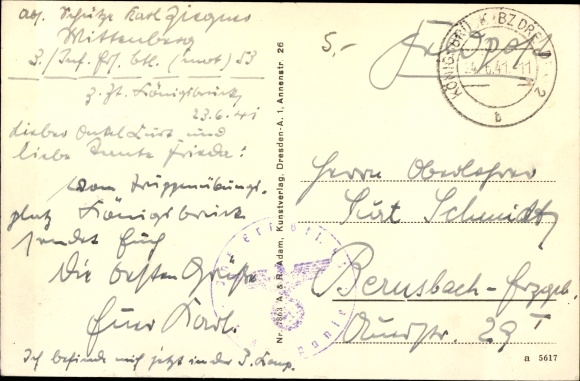 Abs. Schütze Karl Ziegner
Wittenberg
3./Inf. Ers. Btl. (mot) 53
z. Zt. Königsbrück,
23.6.41
Lieber Onkel Kurt und
liebe Tante Frieda!
Vom Truppenübungs-
platz Königsbrück
sendet Euch
die besten Grüße
Euer Karl.
Ich befinde mich jetzt in der 3. Komp.
Nr. A. & R. Adam, Kunstverlag, Dresden-A. 1, Annenstr. 26
5,-
Feldpost
KÖNIGSBRÜCK (BZ DRESDEN) 2
24.6.41. 11
b
Herrn Oberlehrer
Kurt Schmidt
Bernsbach-Erzgeb.
Auerstr. 29 I
a 5617